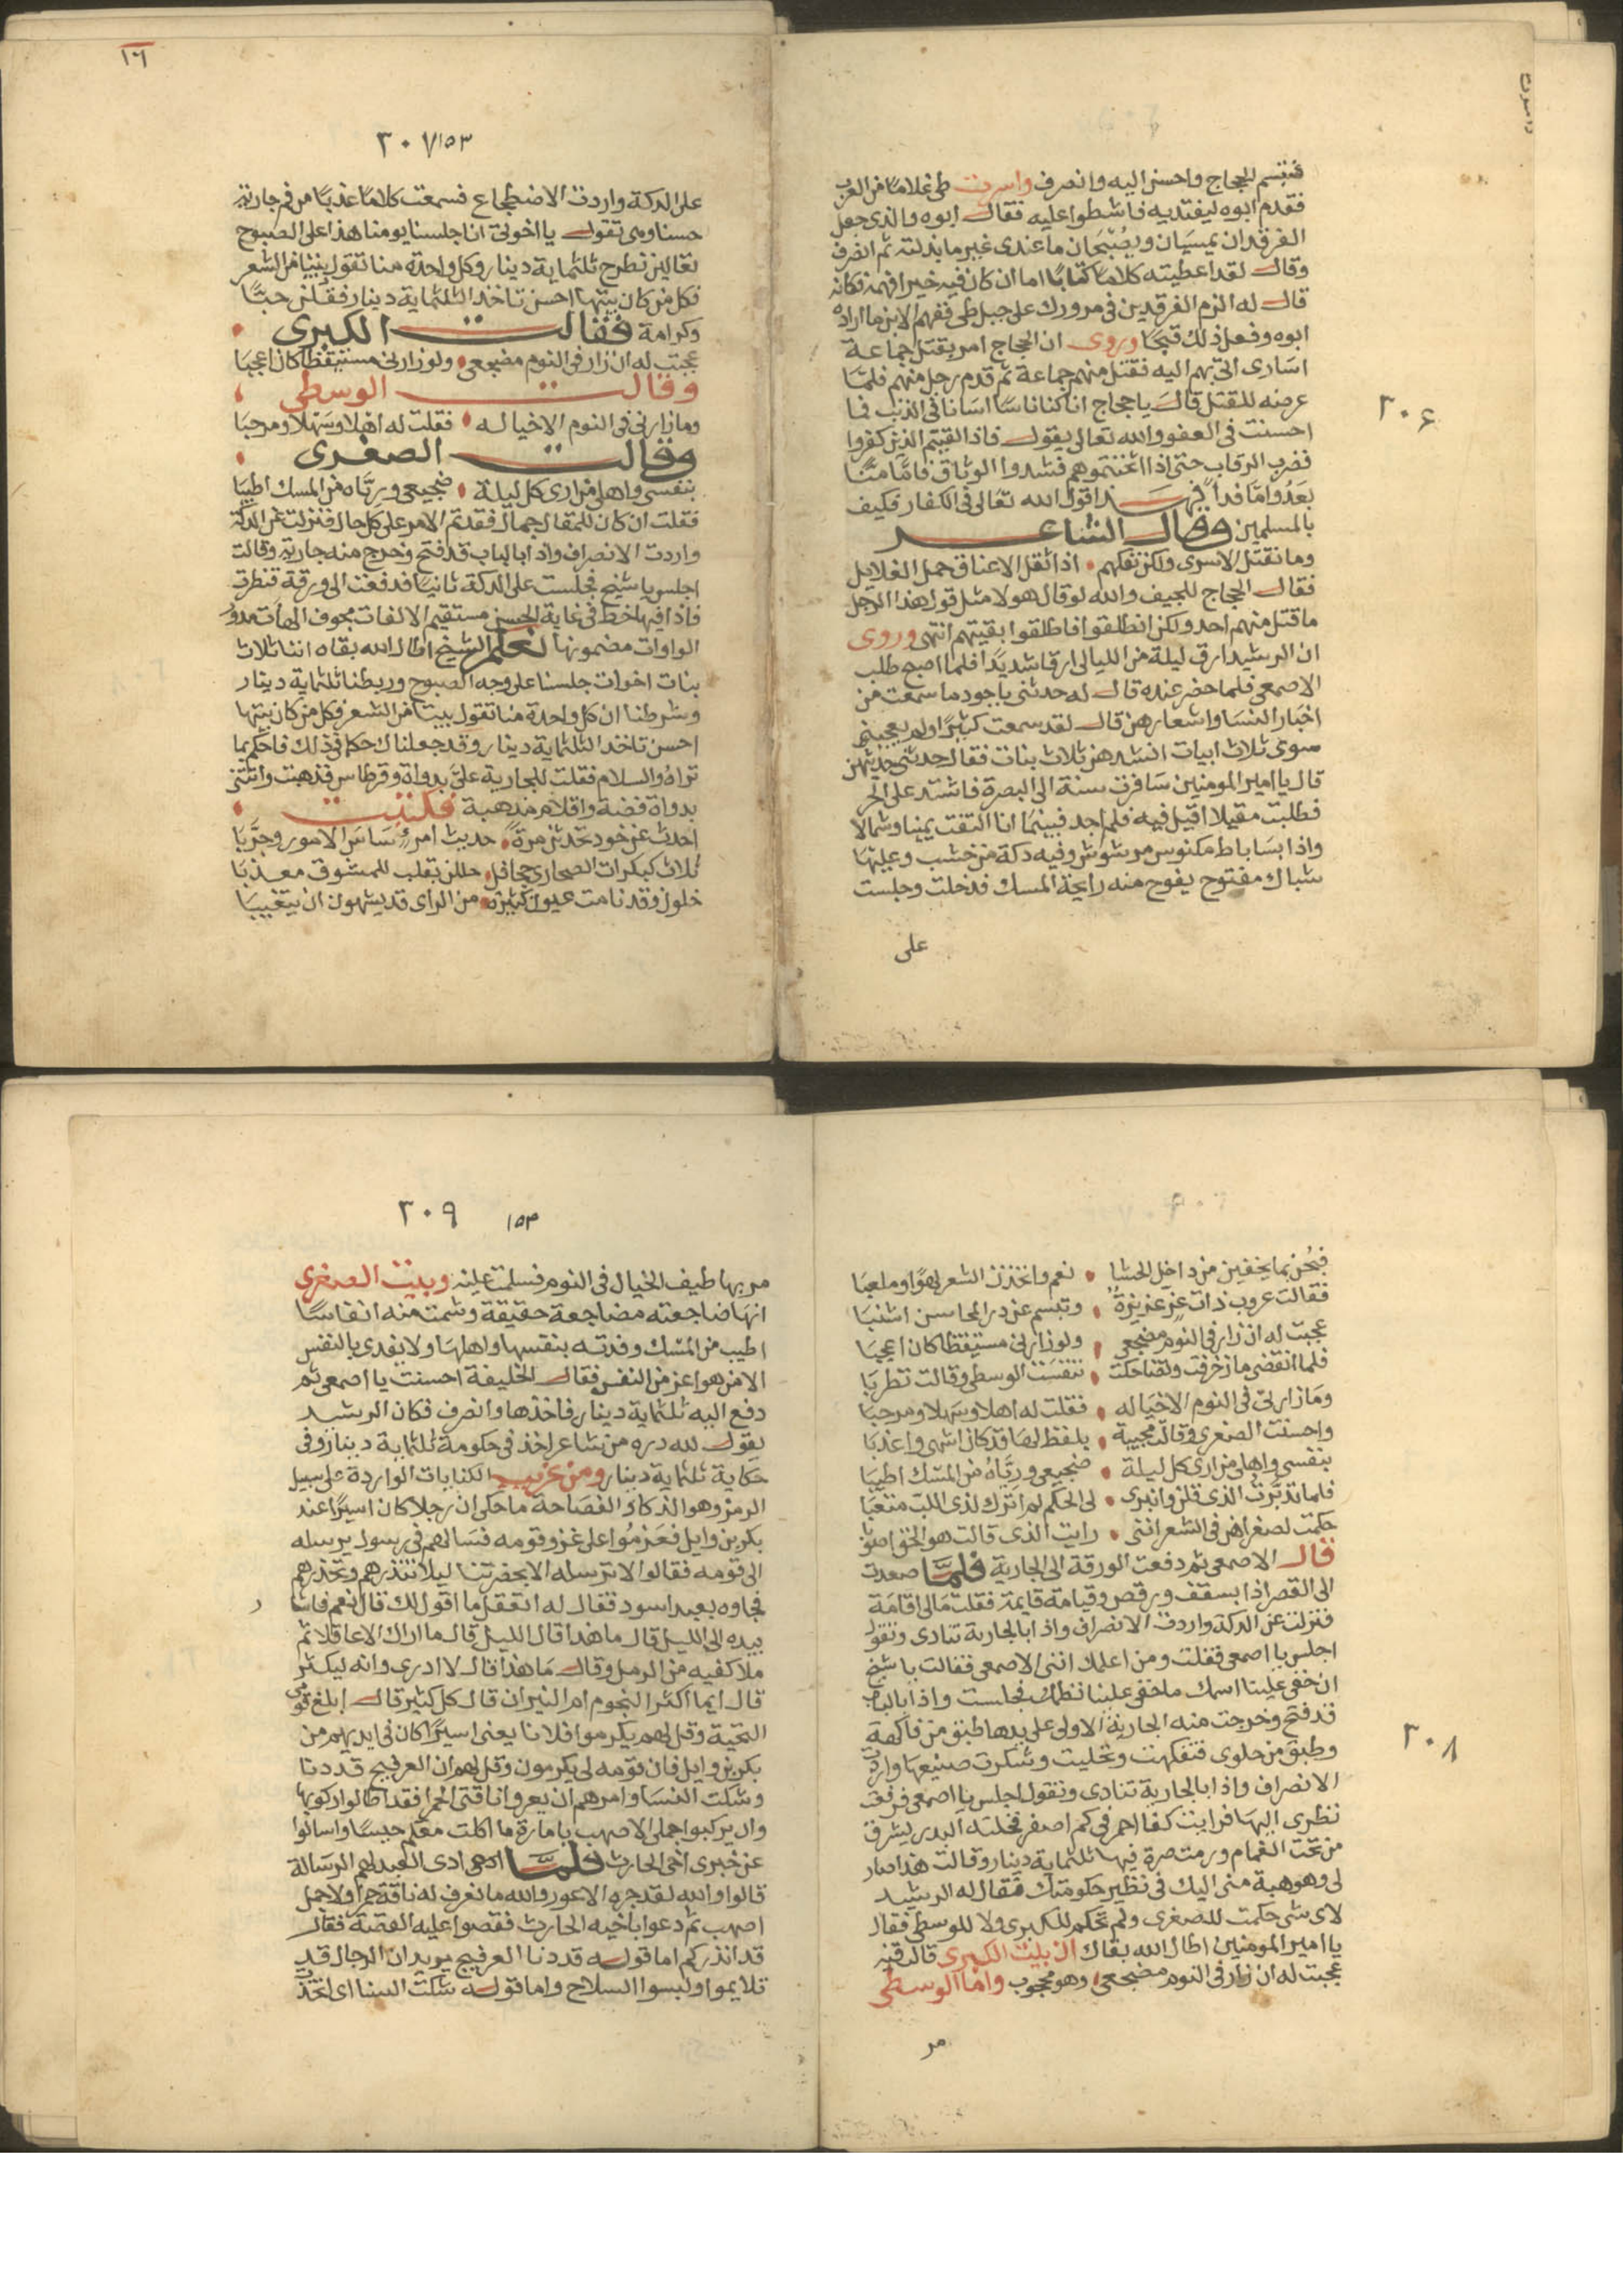 فتبسم الحجاج واحسن اليه وانصرف واسرت طى غلاما من العرب
فقدم ابوه ليفتديه فاشطوا عليه فقال ابوه والذى جعل
الفرقدان يمسيان ويصبحان ما عندى غير ما بذلته ثم انصرف
وقال لقد اعطيته كلاما كتابا اما ان كان فيه خيرا فهمه فكانه
قال له الزم الفرقدين فى مرورك على جبل طى ففهم الابن ما اراده
ابوه وفعل ذلك فنجا وروى ان الحجاج امر بقتل جماعة
اسارى اتى بهم اليه فقتل منهم جماعة ثم قدم رجل منهم فلما
عرضه للقتل قال يا حجاج انا كنا ناسا اسانا فى الذنب فما
٣٠۶
احسنت فى العفو والله تعالى يقول فاذا لقيتم الذين كفروا
فضرب الرقاب حتى اذا اثخنتموهم فشدوا الوثاق فاما منا
بعد واما فدا فهـــذا قول الله تعالى فى الكفار فكيف
بالمسلمين وقال الشاعـر
وما نقتل الاسرى ولكن نفكهم • اذا ثقل الاعناق حمل الغلايل
فقال الحجاج للجيف والله لو قال هولا مثل قول هذا الرجل
ما قتل منهم احد ولكن انطلقوا فاطلقوا بقيتهم انتهى وروى
ان الرشيد ارق ليلة من الليالى ارقا شديدا فلما اصبح طلب
الاصمعى فلما حضر عنده قال له حدثنى باجود ما سمعت من
اخبار النسا واشعارهن قال لقد سمعت كثيرا ولم يعجبنى
سوى ثلاث ابيات انشدهن ثلاث بنات فقال حدثنى حديثهن
قال يا امير المومنين سافرت سنة الى البصرة فاشتد على الحر
فطلبت مقيلا اقيل فيه فلم اجد فبينما انا التفت يمينا وشمالا
واذا بساباط مكنوس مرشوش وفيه دكة من خشب وعليها
شباك مفتوح يفوح منه رايحة المسك فدخلت وجلست
على
١٦
٣٠٧ ١٥٣
على الدكة واردت الاضطجاع فسمعت كلاما عذبا من فم جارية
حسنا وهى تقول يا اخوتى انا جلسنا يومنا هذا على الصبوح
تعالين نطرح ثلثماية دينار وكل واحدة منا تقول بيتا من الشعر
فكل من كان بيتها احسن تاخذ الثلثماية دينار فقلن حبا
وكرامة فقالت الكبرى •
عجبت له ان زار فى النوم مضجعى • ولو زارنى مستيقظا كان اعجبا
وقالت الوسطى •
وما زارنى فى النوم الا خياله • فقلت له اهلا وسهلا ومرحبا
وقالت الصغرى •
بنفسى واهلى من ارى كل ليلة • ضجيعى ورياه من المسك اطيبا
فقلت ان كان للمقال جمال فقد تم الامر على كل حال فنزلت عن الدكة
واردت الانصراف واذا بالباب قد فتح وخرج منه جارية وقالت
اجلس يا شيخ فجلست على الدكة ثانيا فدفعت الى ورقة فنظرت
فاذا فيها خط فى غاية الحسن مستقيم الالفات مجوف الهاات مدور
الواوات مضمونها نعلم الشيخ اطال الله بقاه اننا ثلاث
بنات اخوات جلسنا على وجه الصبوح وربطنا ثلثماية دينار
وشرطنا ان كل واحدة منا تقول بيتا من الشعر فكل من كان بيتها
احسن تاخذ الثلثماية دينار وقد جعلناك حكما فى ذلك فاحكم بما
تراه والسلام فقلت للجارية على بدواة وقرطاس فذهبت واتتنى
بدواة فضة واقلام مذهبة فكتبت •
احدث عن خود تحدثن مرة • حديث امرء ساس الامور وجربا
ثلاث كبكرات الصحارى جحافل • حللن بقلب للمشوق معذبا
خلون وقد نامت عيون كثيرة • من الراى قد يشهون ان يتغيبا
فبحن بما يخفين من داخل الحشا • نعم واتخذن الشعر لهوا وملعبا
فقالت عروب ذات عز عزيزة • وتبسم عن در المحاسن اشنبا
عجبت له ان زار فى النوم مضجعى • ولو زارنى مستيقظا كان اعجبا
فلما انقضى ما زخرفت وتضاحكت • تنفست الوسطى وقالت تطربا
وما زارنى فى النوم الا خياله • فقلت له اهلا وسهلا ومرحبا
واحسنت الصغرى وقالت مجيبة • بلفظ لها قد كان اشهى واعذبا
بنفسى واهلى من ارى كل ليلة • ضجيعى ورياه من المسك اطيبا
فلما تدبرت الذى قلن وانبرى • لى الحكم لم اترك لذى اللب متعبا
حكمت لصغراهن فى الشعر اننى • رايت الذى قالت هو الحق اصوبا
قال الاصمعى ثم دفعت الورقة الى الجارية فلما صعدت
الى القصر اذا بسقف ورقص وقيامة قايمة فقلت ما لى اقامة
فنزلت عن الدكة واردت الانصراف واذا بالجارية تنادى وتقول
اجلس يا اصمعى فقلت ومن اعلمك اننى الاصمعى فقالت يا شيخ
ان خفى علينا اسمك ما خفى علينا نظمك فجلست واذا بالباب
قد فتح وخرجت منه الجارية الاولى على يدها طبق من فاكهة
٣٠٨
وطبق من حلوى فتفكهت وتحليت وشكرت صنيعها واردت
الانصراف واذا بالجارية تنادى وتقول اجلس يا اصمعى فرفعت
نظرى اليها فرايت كفا احمر فى كم اصفر فخلته البدر يشرق
من تحت الغمام ورمت صرة فيها ثلثماية دينار وقالت هذا صار
لى وهو هبة منى اليك فى نظير حكومتك فقال له الرشيد
لاى شى حكمت للصغرى ولم تحكم للكبرى ولا للوسطى فقال
يا امير المومنين اطال الله بقاك ان بيت الكبرى قالت فيه
عجبت له ان زار فى النوم مضجعى وهو محجوب واما الوسطى
مر
٣٠٩ ١٥٣
مر بها طيف الخيال فى النوم فسلمت عليه وبيت الصغرى
انها ضاجعته مضاجعة حقيقة وشمت منه انفاسا
اطيب من المسك وفدته بنفسها واهلها ولا يفدى بالنفس
الا من هو اعز من النفس فقال الخليفة احسنت يا اصمعى ثم
دفع اليه ثلثماية دينار فاخذها وانصرف فكان الرشيد
يقول لله دره من شاعر اخذ فى حكومة ثلثماية دينار وفى
حكاية ثلثماية دينار ومن غريب الكنايات الواردة على سبيل
الرمز وهو الذكا والفصاحة ما حكى ان رجلا كان اسيرا عند
بكر بن وايل فعزموا على غزو قومه فسالهم فى رسول يرسله
الى قومه فقالوا لا ترسله الا بحضرتنا ليلا تنذرهم وتحذرهم
فجاوه بعبد اسود فقال له اتعقل ما اقول لك قال نعم فاشار
بيده الى الليل قال ما هذا قال الليل قال ما اراك الا عاقلا ثم
ملا كفيه من الرمل وقال ما هذا قال لا ادرى وانه ليكثر
قال ايما اكثر النجوم ام النيران قال كل كثير قال ابلغ قومى
التحية وقل لهم يكرموا فلانا يعنى اسيرا كان فى ايديهم من
بكر بن وايل فان قومه لى يكرمون وقل لهم ان العرفج قد دنا
وشكت النسا وامرهم ان يعروا ناقتى الحمرا فقد اطالوا ركوبها
وان يركبوا جملى الاصهب بامارة ما اكلت معكم حيسا واسالوا
عن خبرى اخى الحارث فلما ادى العبد لهم الرسالة
قالوا والله لقد جره الاعور والله ما نعرف له ناقة حمرا ولا جمل
اصهب ثم دعوا باخيه الحارث فقصوا عليه القصة فقال
قد انذركم اما قوله قد دنا العرفج يريد ان الرجال قد
تلايموا ولبسوا السلاح واما قوله شكت النسا اى اتخذت